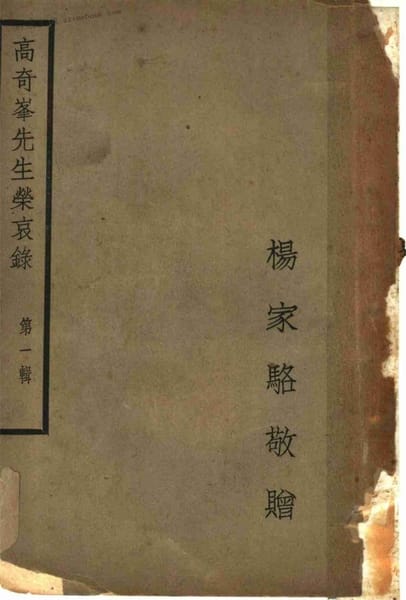 高奇峯先生榮哀錄
第一輯
楊家駱敬贈